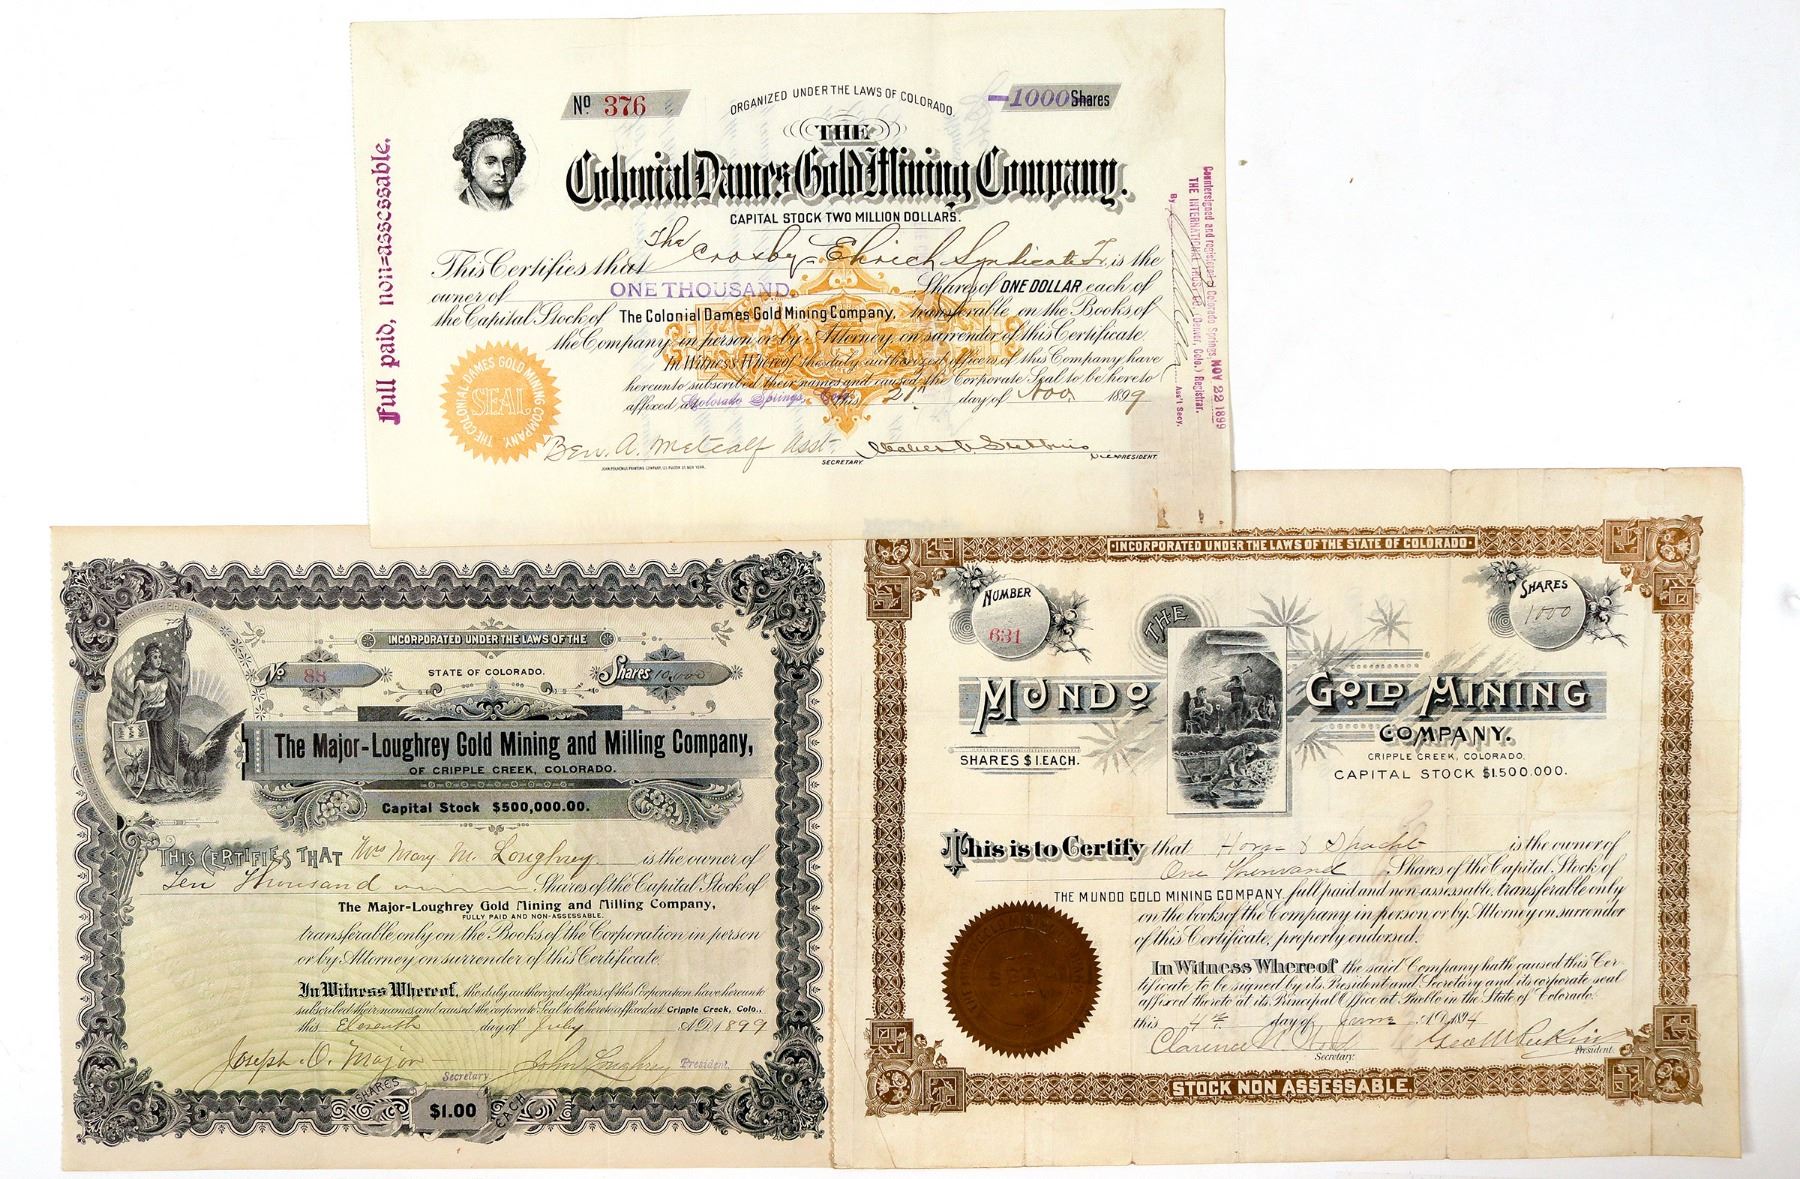 Nº 376
ORGANIZED UNDER THE LAWS OF COLORADO.
1000 Shares
THE
Colonial Dames Gold Mining Company.
CAPITAL STOCK TWO MILLION DOLLARS.
This Certifies that The Crosby-Ehrich Syndicate Tr. is the
owner of ONE THOUSAND. Shares of ONE DOLLAR each of
the Capital Stock of The Colonial Dames Gold Mining Company, transferable on the Books of
the Company in person or by Attorney on surrender of this Certificate.
In Witness Whereof the duly authorized officers of this Company have
hereunto subscribed their names and caused the Corporate Seal to be hereto
affixed at Colorado Springs, Colo. this 21st day of Nov. 1899
Ben. A. Metcalf Asst.
SECRETARY.
VICE PRESIDENT.
THE COLONIAL DAMES GOLD MINING COMPANY.
SEAL
Full paid, non-assessable.
Countersigned and registered at Colorado Springs, NOV 22 1899
THE INTERNATIONAL TRUST CO. (Denver, Colo.) Registrar.
By
Ass't Secy.
INCORPORATED UNDER THE LAWS OF THE
STATE OF COLORADO.
No 88
Shares 10,000
The Major-Loughrey Gold Mining and Milling Company,
OF CRIPPLE CREEK, COLORADO.
Capital Stock $500,000.00.
THIS CERTIFIES THAT Mrs Mary M. Loughrey is the owner of
Ten Thousand Shares of the Capital Stock of
The Major-Loughrey Gold Mining and Milling Company,
FULLY PAID AND NON-ASSESSABLE.
transferable only on the Books of the Corporation in person
or by Attorney on surrender of this Certificate.
In Witness Whereof, the duly authorized officers of this Corporation have hereunto
subscribed their names and caused the corporate Seal to be hereto affixed at Cripple Creek, Colo.,
this Eleventh day of July A.D. 1899
Joseph O. Major
Secretary
John Loughrey
President.
SHARES $1.00 EACH
INCORPORATED UNDER THE LAWS OF THE STATE OF COLORADO
NUMBER
631
SHARES
1000
THE
MUNDO GOLD MINING
COMPANY.
SHARES $1. EACH.
CRIPPLE CREEK, COLORADO.
CAPITAL STOCK $1.500.000.
This is to Certify that is the owner of
One Thousand Shares of the Capital Stock of
THE MUNDO GOLD MINING COMPANY, full paid and non-assessable, transferable only
on the books of the Company in person or by Attorney on surrender
of this Certificate, properly endorsed.
In Witness Whereof the said Company hath caused this Cer-
tificate to be signed by its President and Secretary and its corporate seal
affixed thereto at its Principal Office at Pueblo in the State of Colorado.
this 4th day of June A.D. 1894
Clarence
Secretary.
President.
STOCK NON ASSESSABLE.